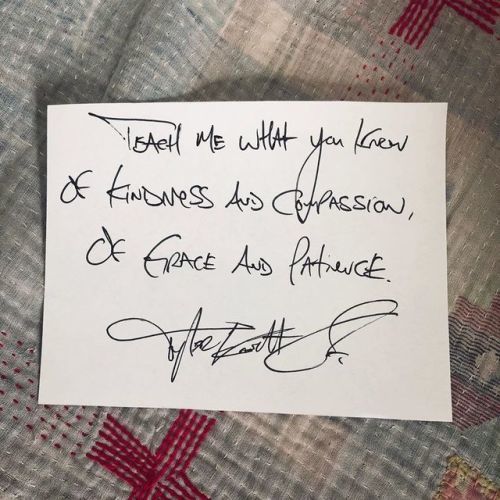 TEACH ME WHAT you KNOW
OF KINDNESS AND COMPASSION,
OF GRACE AND PATIENCE.